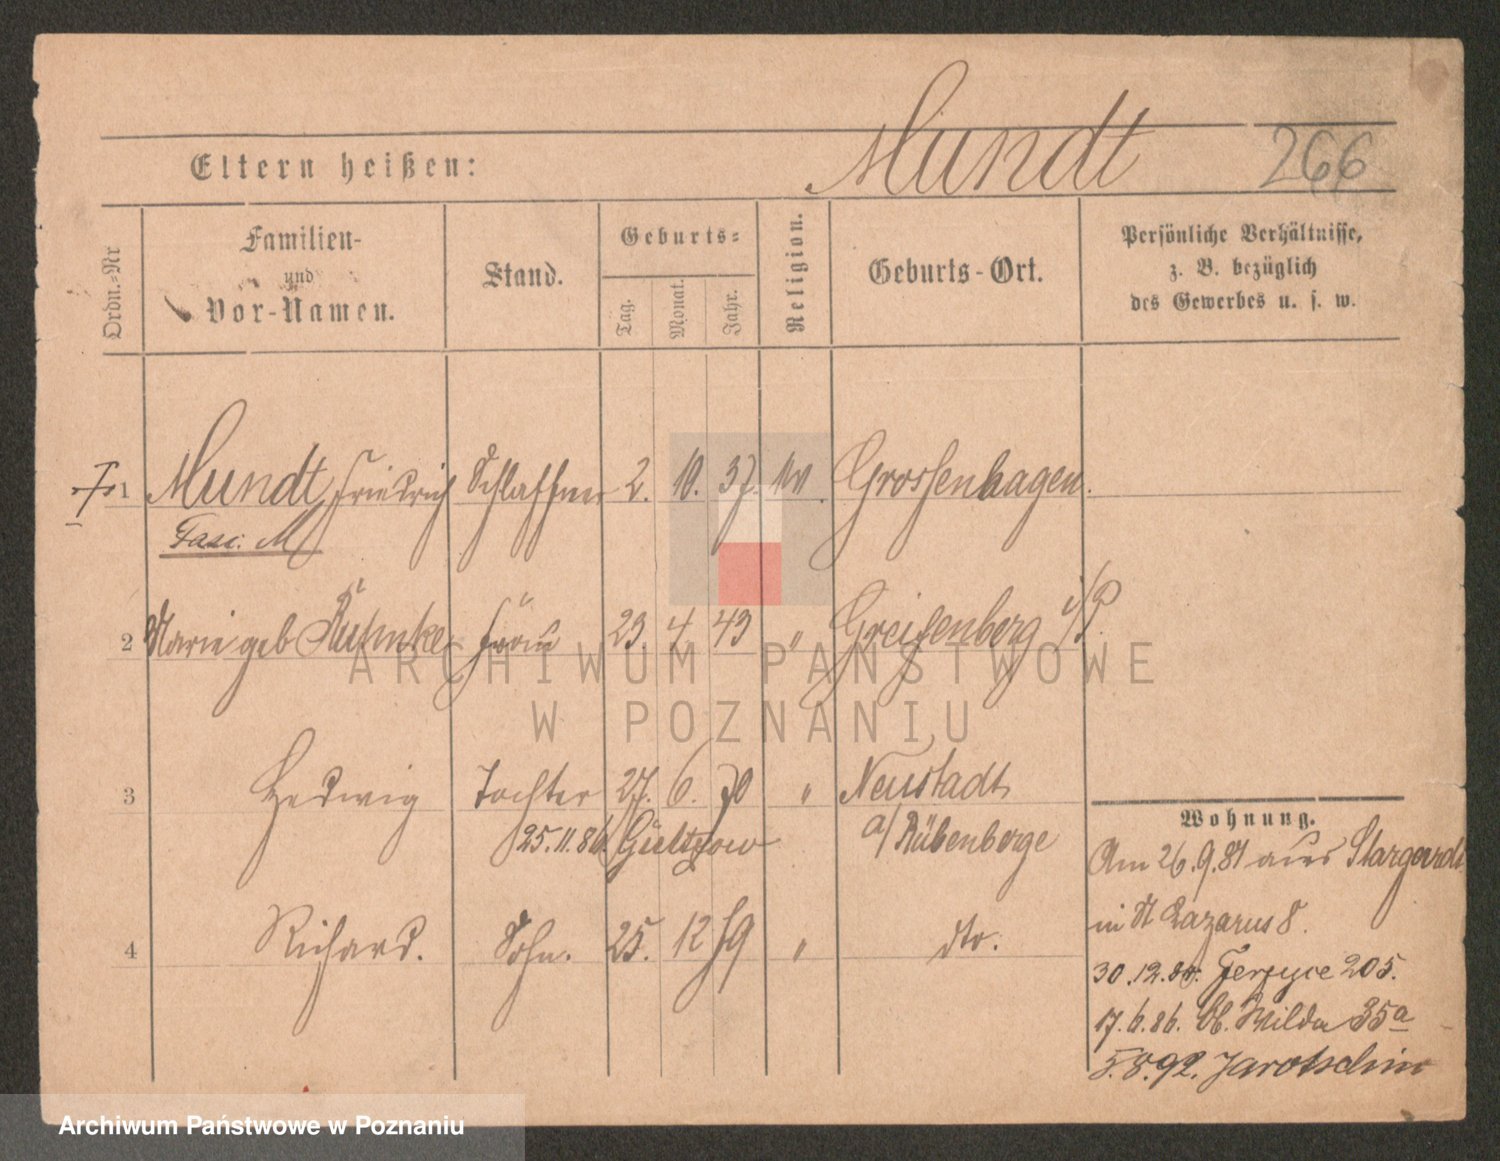 Mundt 266
Eltern heißen:
Ordn.-Nr
Familien-
und
Vor-Namen.
Stand.
Geburts-
Tag. Monat. Jahr.
Religion.
Geburts-Ort.
Persönliche Verhältnisse,
z. B. bezüglich
des Gewerbes u. s. w.
1 Mundt, Friedrich Schaffner 2. 10. 37. Grossenhagen.
Fasc. M
2 Marie geb Frau 23. 4. 43 " Greifenberg i/P.
3 Hedwig Tochter 27. 6. 70 " Neustadt
25.11.86. Gültzow a/Rübenberge
4 Richard. Sohn. 25. 12 " dto.
Wohnung.
Am 26.9.81 aus Stargardt
in St Lazarus 8.
30.12. Jerzyce 205.
17.6.86. Ob. Wilda 35a
5.8.92. Jarotschin
ARCHIWUM PAŃSTWOWE
W POZNANIU
Archiwum Państwowe w Poznaniu